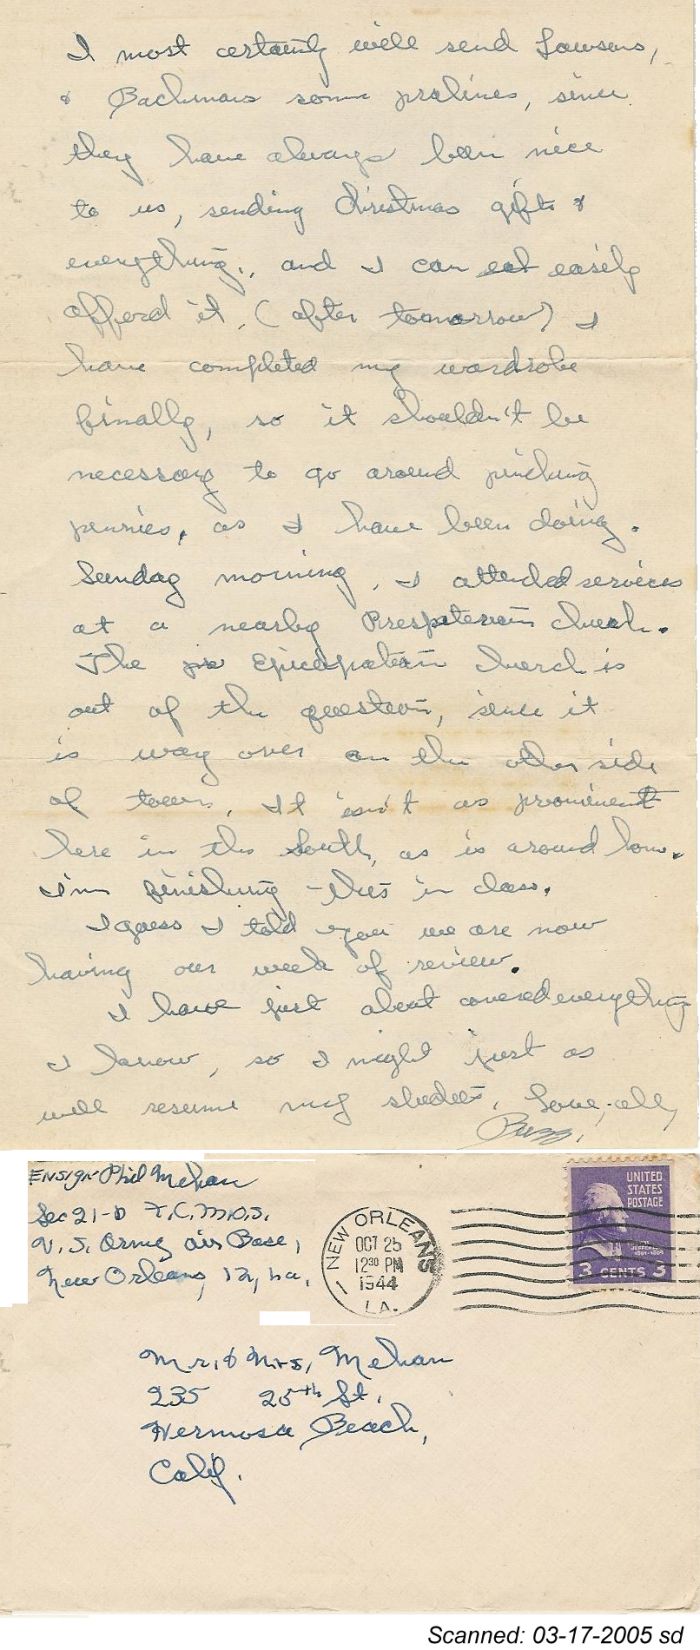 I most certainly will send Lawsons,
& Bachmans some pralines, since
they have always been nice
to us, sending Christmas gifts &
everything., and I can eat easily
afford it. (after tomorrow) I
have completed my wardrobe
finally, so it shouldn't be
necessary to go around pinching
pennies, as I have been doing.
Sunday morning, I attended services
at a nearby Prespyterian church.
The Epicopalian church is
out of the question, since it
is way over on the other side
of town. It isn't as prominent
here in the South, as is around home.
I'm finishing this in class.
I guess I told you we are now
having our week of review.
I have just about covered everything
I know, so I might just as
well resume my studies. Love, all,
Buzz.
ENSIGN Phil Mehan
Sec 21-D
U.S. Army Air Base,
New Orleans, 12, La.
NEW ORLEANS
OCT 25
12 30 PM
1944
LA.
UNITED
STATES
POSTAGE
3 CENTS 3
Mr. & Mrs. Mehan
235 25th St.
Hermosa Beach,
Calif.
Scanned: 03-17-2005 sd